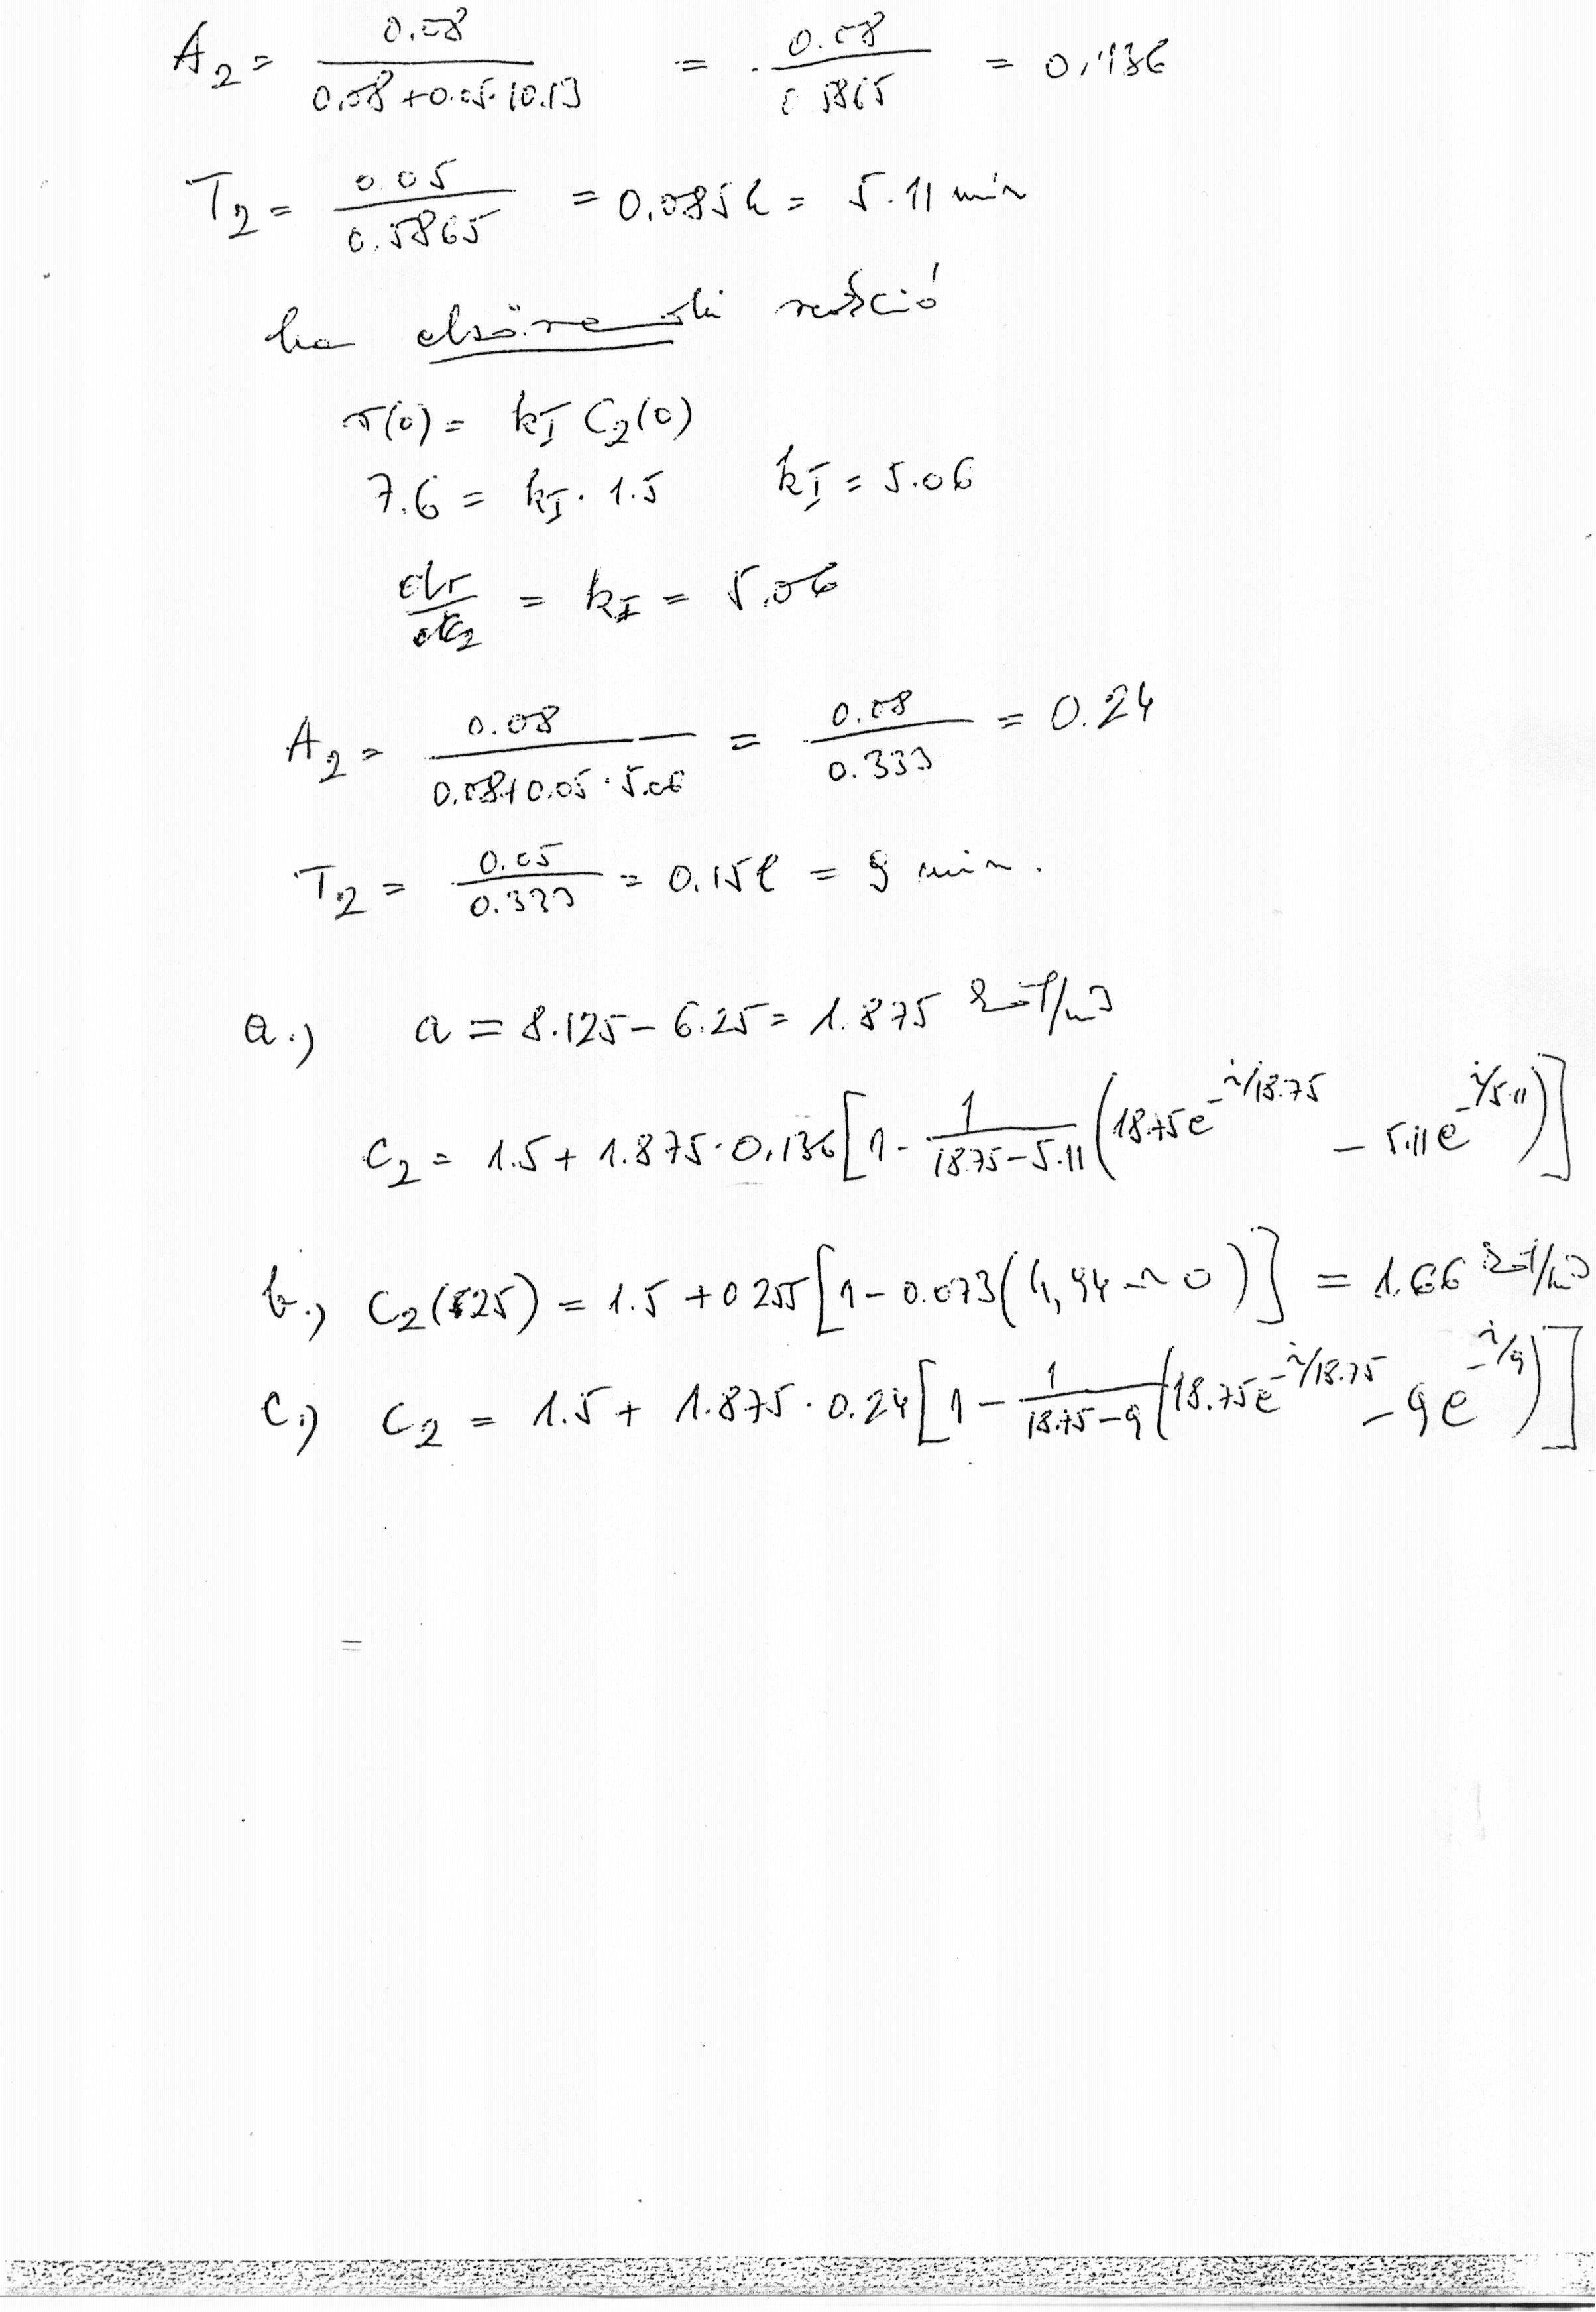 A₂ = 0.08 / (0.08 + 0.05·10.13) = 0.08 / 0.5865 = 0.136
T₂ = 0.05 / 0.5865 = 0.085 h = 5.11 min
ha elsőrendű reakció
r(0) = k_I C₂(0)
7.6 = k_I · 1.5   k_I = 5.06
dr/dc₂ = k_I = 5.06
A₂ = 0.08 / (0.08 + 0.05 · 5.06) = 0.08 / 0.333 = 0.24
T₂ = 0.05 / 0.333 = 0.15 h = 9 min.
a.) a = 8.125 − 6.25 = 1.875
C₂ = 1.5 + 1.875 · 0.136 [1 − 1/(18.75 − 5.11) (18.75 e^(−t/18.75) − 5.11 e^(−t/5.11))]
b.) C₂(25) = 1.5 + 0.255 [1 − 0.073 (4,94 − ~0)] = 1.66
c.) C₂ = 1.5 + 1.875 · 0.24 [1 − 1/(18.75 − 9) (18.75 e^(−t/18.75) − 9 e^(−t/9))]
=